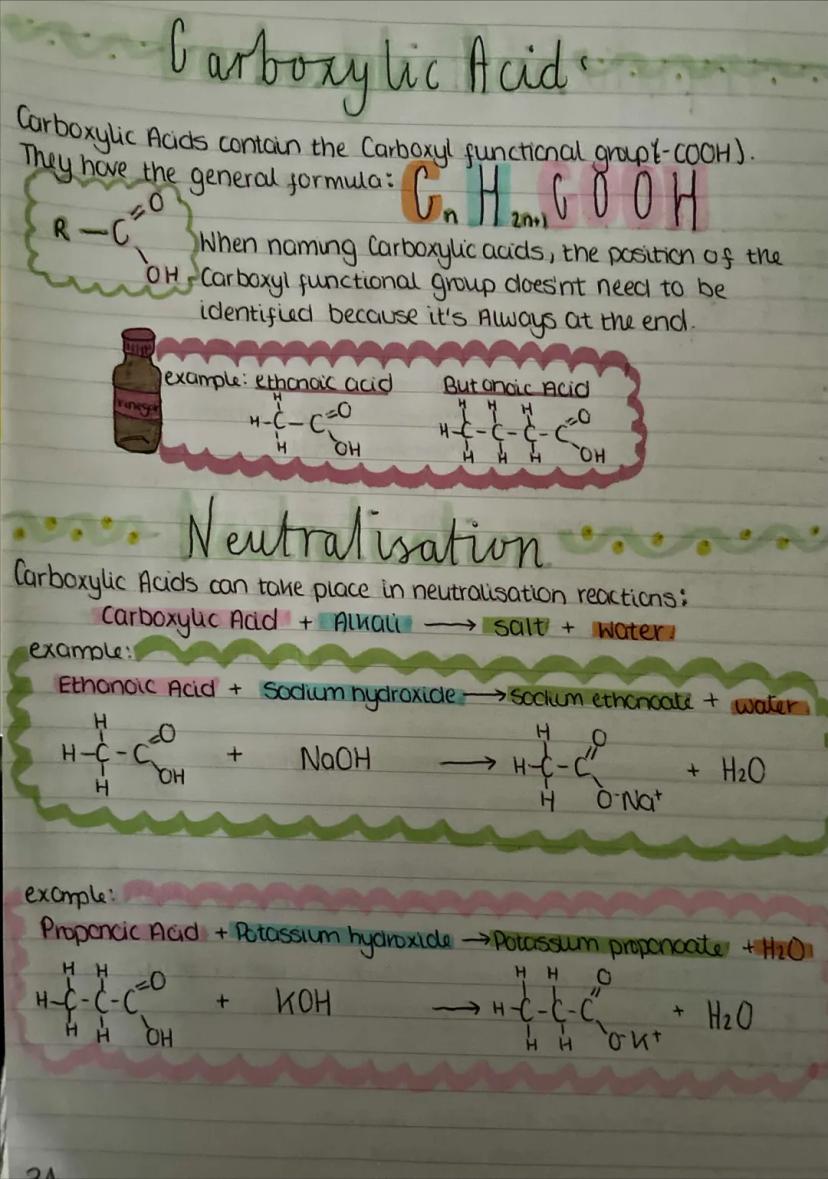 Carboxylic Acid
Carboxylic Acids contain the Carboxyl functional group(-COOH).
They have the general formula: CnH2n+1COOH
R-C=O
OH
When naming Carboxylic acids, the position of the
Carboxyl functional group does'nt need to be
identified because it's Always at the end.
vinegar
example: ethanoic acid Butanoic Acid
H H H H
H-C-C=O H-C-C-C-C=O
H OH H H H OH
Neutralisation
Carboxylic Acids can take place in neutralisation reactions:
Carboxylic Acid + Alkali → salt + water.
example:
Ethanoic Acid + Sodium hydroxide → sodium ethanoate + water
H H O
H-C-C=O + NaOH → H-C-C + H2O
H OH H O-Na+
example:
Propanoic Acid + Potassium hydroxide → Potassium propanoate + H2O
H H H H O
H-C-C-C=O + KOH → H-C-C-C + H2O
H H OH H H O-K+